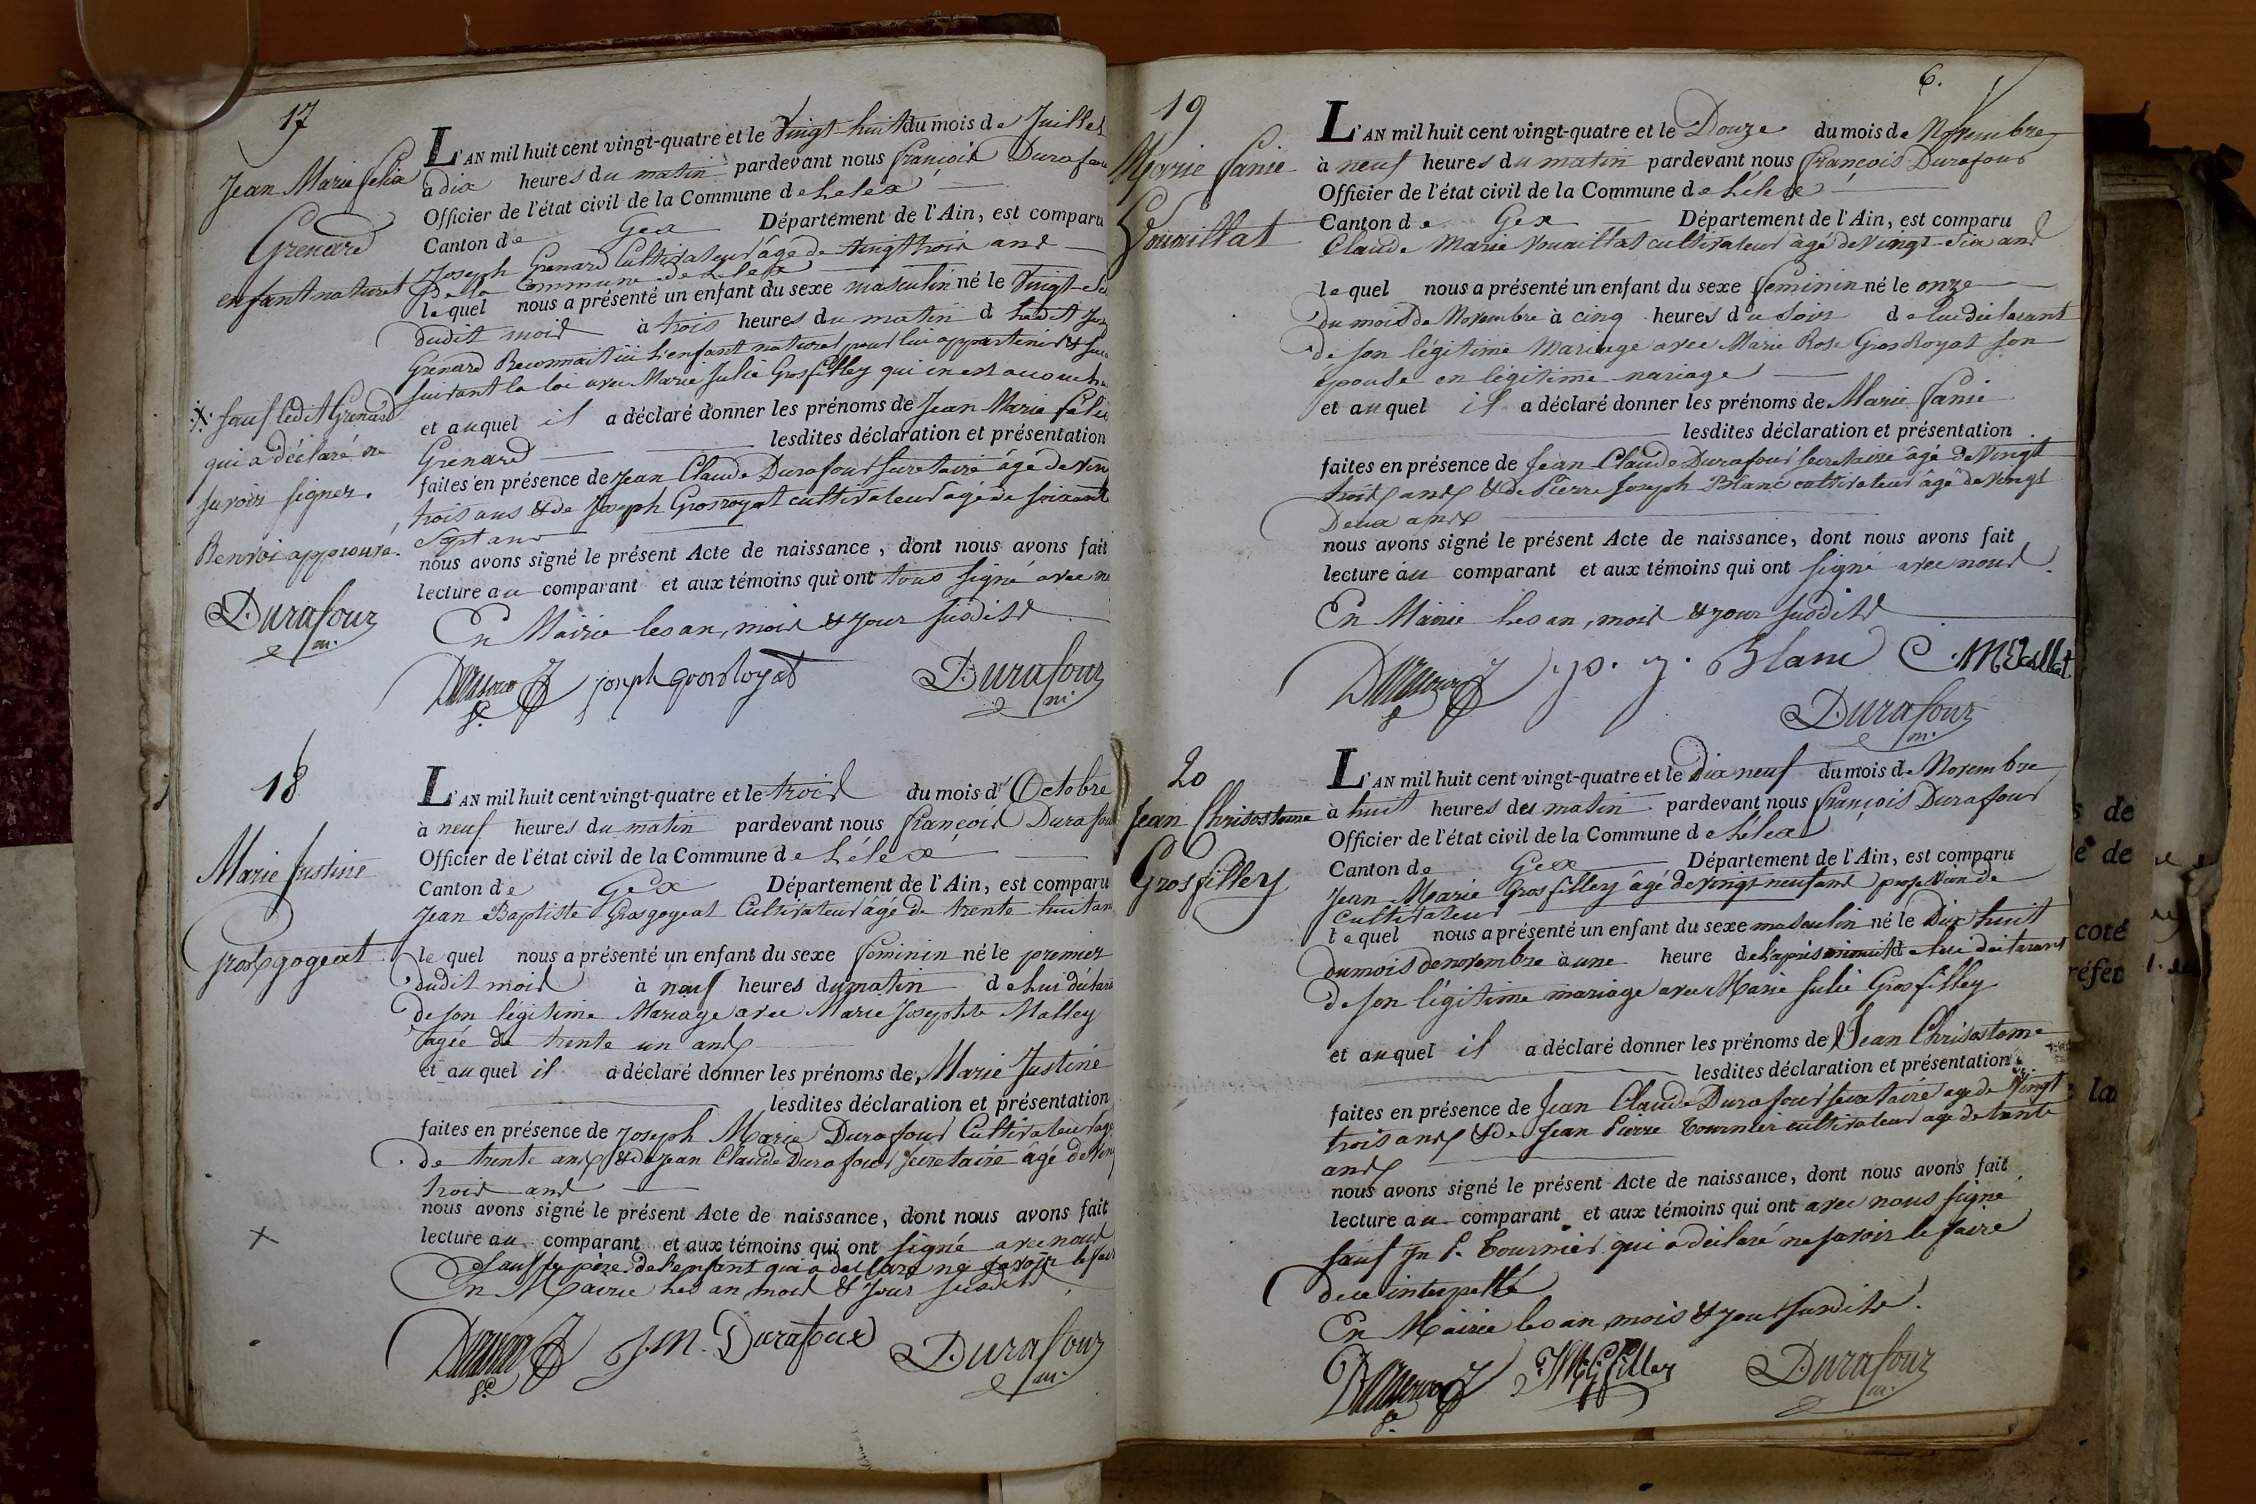 17
Jean Marie Felix
Grenard
enfant naturel
L'AN mil huit cent vingt-quatre et le Vingt huit du mois de Juillet
à dix heures du matin pardevant nous François Durafour
Officier de l'état civil de la Commune de Lélex
Canton de Gex Département de l'Ain, est comparu
Joseph Grenard Cultivateur âgé de vingt trois ans
De la Commune de Lelex
lequel nous a présenté un enfant du sexe masculin né le Vingt
dudit mois à trois heures du matin d
Grenard Reconnait ici l'enfant naturel pour lui appartenir &
suivant la loi avec Marie Julie Grosfilley qui en est accouché
et auquel il a déclaré donner les prénoms de Jean Marie Felix
Grenard lesdites déclaration et présentation
faites en présence de Jean Claude Durafour Secretaire âgé de vin
trois ans & de Joseph Grosroyat cultivateur âgé de soixante
Sept ans
nous avons signé le présent Acte de naissance, dont nous avons fait
lecture au comparant et aux témoins qui ont tous signé avec n
En Mairie les an, mois & jour susdits
Durafour joseph grosroyat Durafour
Sre m.
X sauf ledit Grenard
qui a déclaré ne
savoir signer.
Renvoi approuvé.
Durafour
m.
18
Marie Justine
Grosgogeat
L'AN mil huit cent vingt-quatre et le trois du mois d'Octobre
à neuf heures du matin pardevant nous François Durafour
Officier de l'état civil de la Commune de Lélex
Canton de Gex Département de l'Ain, est comparu
Jean Baptiste Grosgogeat Cultivateur âgé de trente huit ans
lequel nous a présenté un enfant du sexe féminin né le premier
dudit mois à neuf heures du matin de lui déclara
de son légitime Mariage avec Marie Josephte Malley
agée de trente un ans
et auquel il a déclaré donner les prénoms de Marie Justine
lesdites déclaration et présentation
faites en présence de Joseph Marie Durafour Cultivateur agé
de trente ans & de Jean Claude Durafour Secretaire âgé de Vin
trois ans
nous avons signé le présent Acte de naissance, dont nous avons fait
lecture au comparant et aux témoins qui ont signé avec nous
Sauf le père de l'enfant qui a déclaré ne savoir le fair
En Mairie les an mois & jour susdits
Durafour J.M. Durafour Durafour
Sre m.
X
6.
19
Marie Fanie
Vouaillat
L'AN mil huit cent vingt-quatre et le Douze du mois de Novembre
à neuf heures du matin pardevant nous François Durafour
Officier de l'état civil de la Commune de Lélex
Canton de Gex Département de l'Ain, est comparu
Claude Marie Vouaillat cultivateur âgé de vingt-six ans
lequel nous a présenté un enfant du sexe féminin né le onze
du mois de Novembre à cinq heures du soir de lui déclarant
de son légitime Mariage avec Marie Rose Grosroyat son
épouse en légitime mariage
et auquel il a déclaré donner les prénoms de Marie Fanie
lesdites déclaration et présentation
faites en présence de Jean Claude Durafour secretaire âgé de Vingt
trois ans & de Pierre Joseph Blanc cultivateur âgé de vingt
Deux ans
nous avons signé le présent Acte de naissance, dont nous avons fait
lecture au comparant et aux témoins qui ont signé avec nous.
En Mairie les an, mois & jour susdits
Durafour p. j. Blanc C.M Vallat
Durafour
m.
20
Jean Chrisostome
Grosfilley
L'AN mil huit cent vingt-quatre et le Dix neuf du mois de Novembre
à huit heures du matin pardevant nous François Durafour
Officier de l'état civil de la Commune de Lélex
Canton de Gex Département de l'Ain, est comparu
Jean Marie Grosfilley âgé de vingt neuf ans profession de
cultivateur
lequel nous a présenté un enfant du sexe masculin né le Dix huit
du mois de novembre à une heure de l'après minuit de lui déclarant
de son légitime mariage avec Marie Julie Grosfilley
et auquel il a déclaré donner les prénoms de Jean Chrisostome
lesdites déclaration et présentation
faites en présence de Jean Claude Durafour secretaire age de Vingt
trois ans & de Jean Pierre Tournier cultivateur age de trente
ans
nous avons signé le présent Acte de naissance, dont nous avons fait
lecture au comparant et aux témoins qui ont avec nous signé
sauf Jn P. Tournier qui a déclaré ne savoir le faire
de ce interpellé
En Mairie les an mois & jour susdits.
Durafour JM Gfilley Durafour
Sre m.
de
de
coté
réfet
la